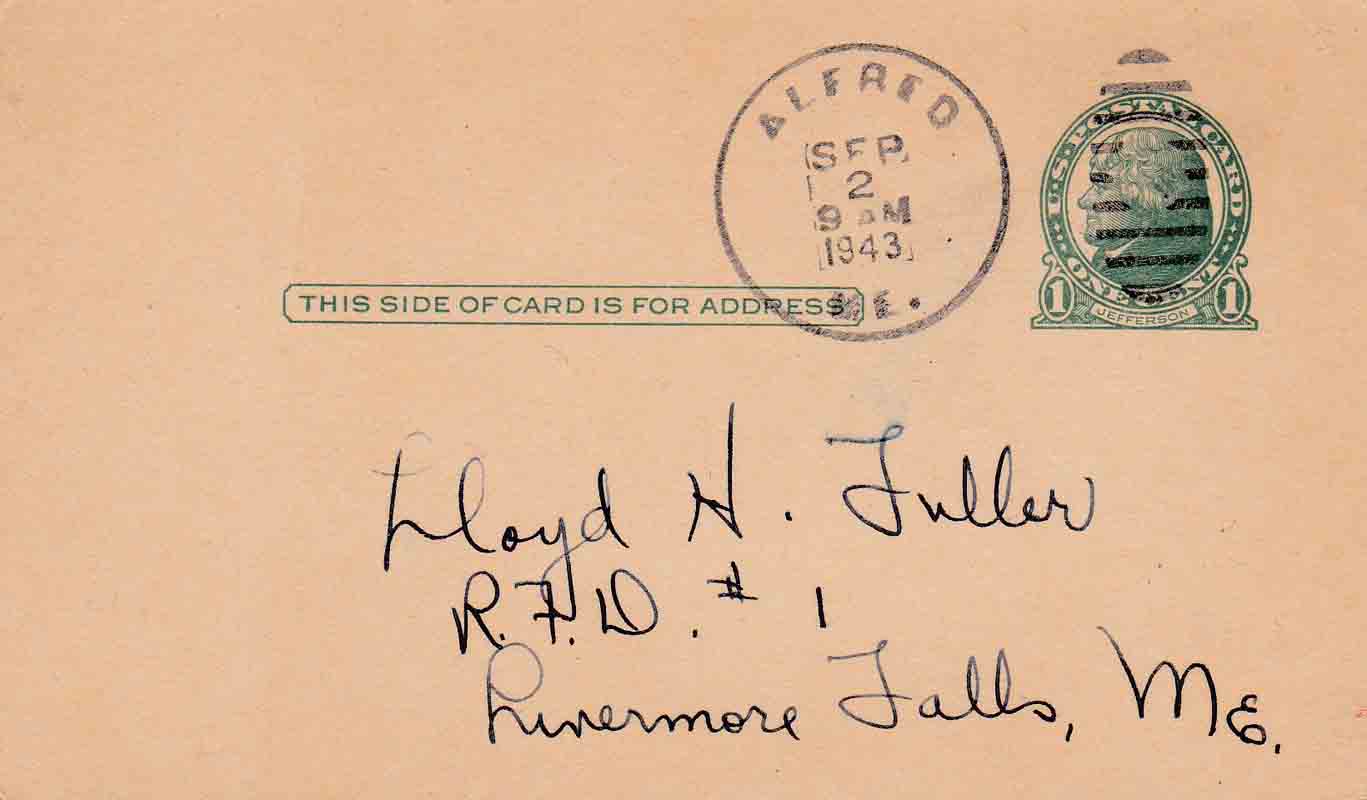 ALFRED
SEP
2
9 AM
1943
ME.
U.S. POSTAL CARD
1 ONE CENT 1
JEFFERSON
THIS SIDE OF CARD IS FOR ADDRESS
Lloyd H. Fuller
R.F.D. # 1
Livermore Falls, ME.